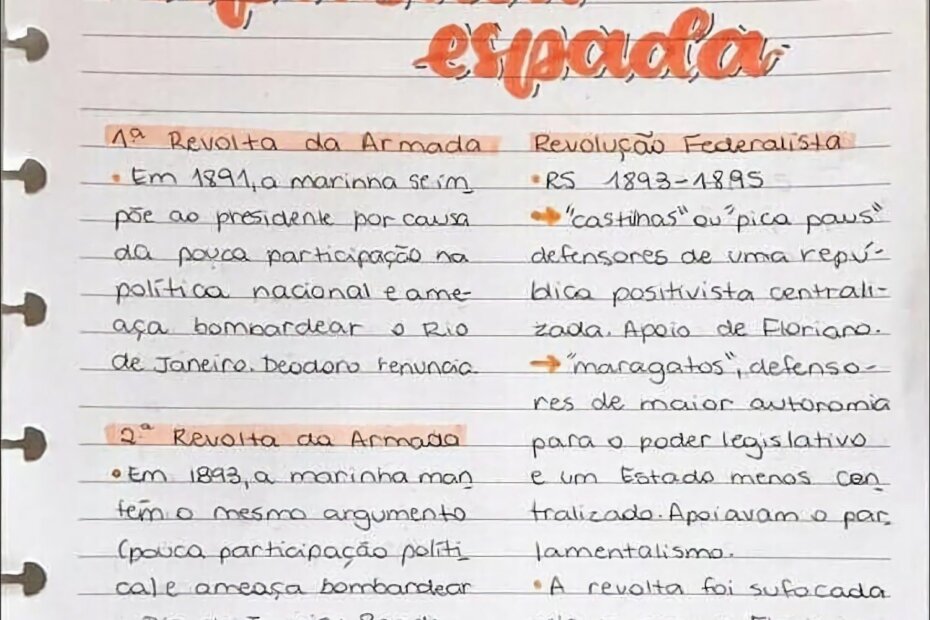 espada
1ª Revolta da Armada
• Em 1891, a marinha se im
põe ao presidente por causa
da pouca participação na
política nacional e ame-
aça bombardear o Rio
de Janeiro. Deodoro renuncia.
2ª Revolta da Armada
• Em 1893, a marinha man
tém o mesmo argumento
(pouca participação políti
ca) e ameaça bombardear
Revolução Federalista
• RS 1893-1895
→ "castilhas" ou "pica paus"
defensores de uma repú-
blica positivista centrali-
zada. Apoio de Floriano.
→ "maragatos", defenso-
res de maior autonomia
para o poder legislativo
e um Estado menos cen
tralizado. Apoiavam o par
lamentalismo.
• A revolta foi sufocada